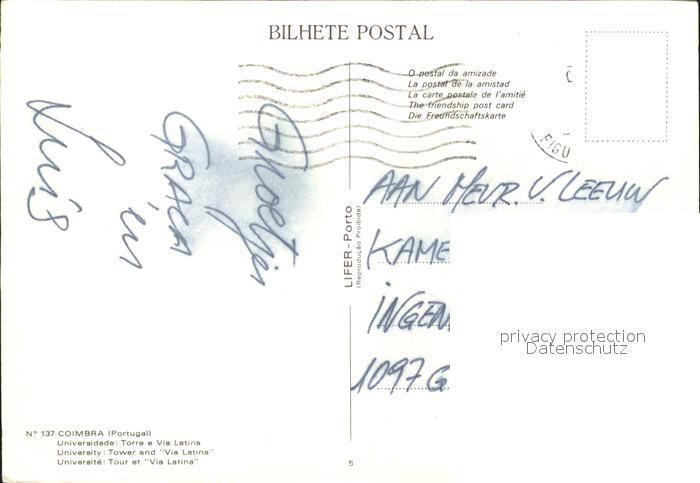 BILHETE POSTAL
O postal da amizade
La postal de la amistad
La carte postale de l'amitié
The friendship post card
Die Freundschaftskarte
FIGU
Groetjes
GRAÇA
en
Luis
LIFER - Porto
(Reprodução Proibida)
AAN MEVR. V. LEEUW
KAME
INGEN
1097 G
privacy protection
Datenschutz
Nº 137 COIMBRA (Portugal)
Universidade: Torre e Via Latina
University: Tower and "Via Latina"
Université: Tour et "Via Latina"
5